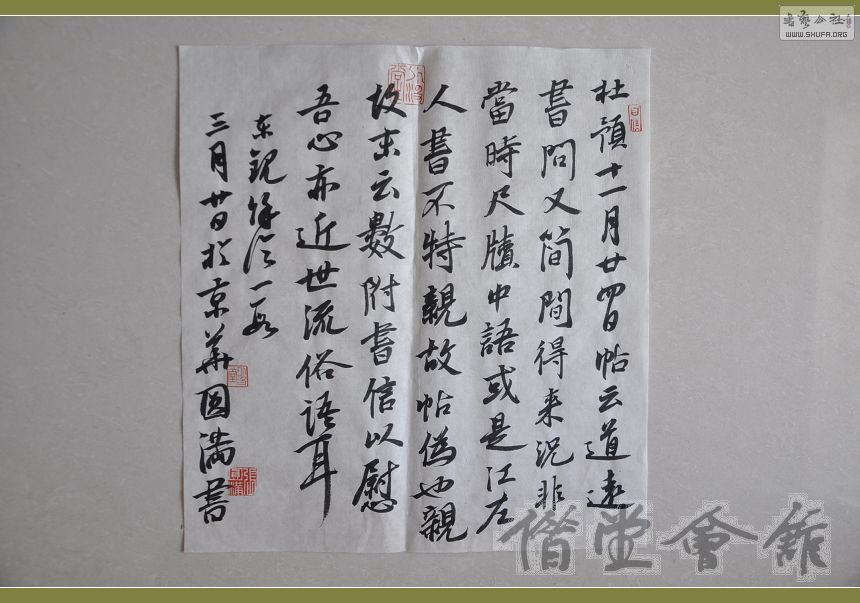 杜預十一月廿四日帖云道遠
書問又簡間得来況非
當時尺牘中語或是江左
人書不特親故帖偽也親
故末云數附書信以慰
吾心亦近世流俗语耳
东觀馀论一段
三月廿日於京華圆满書
書藝公社
WWW.SHUFA.ORG